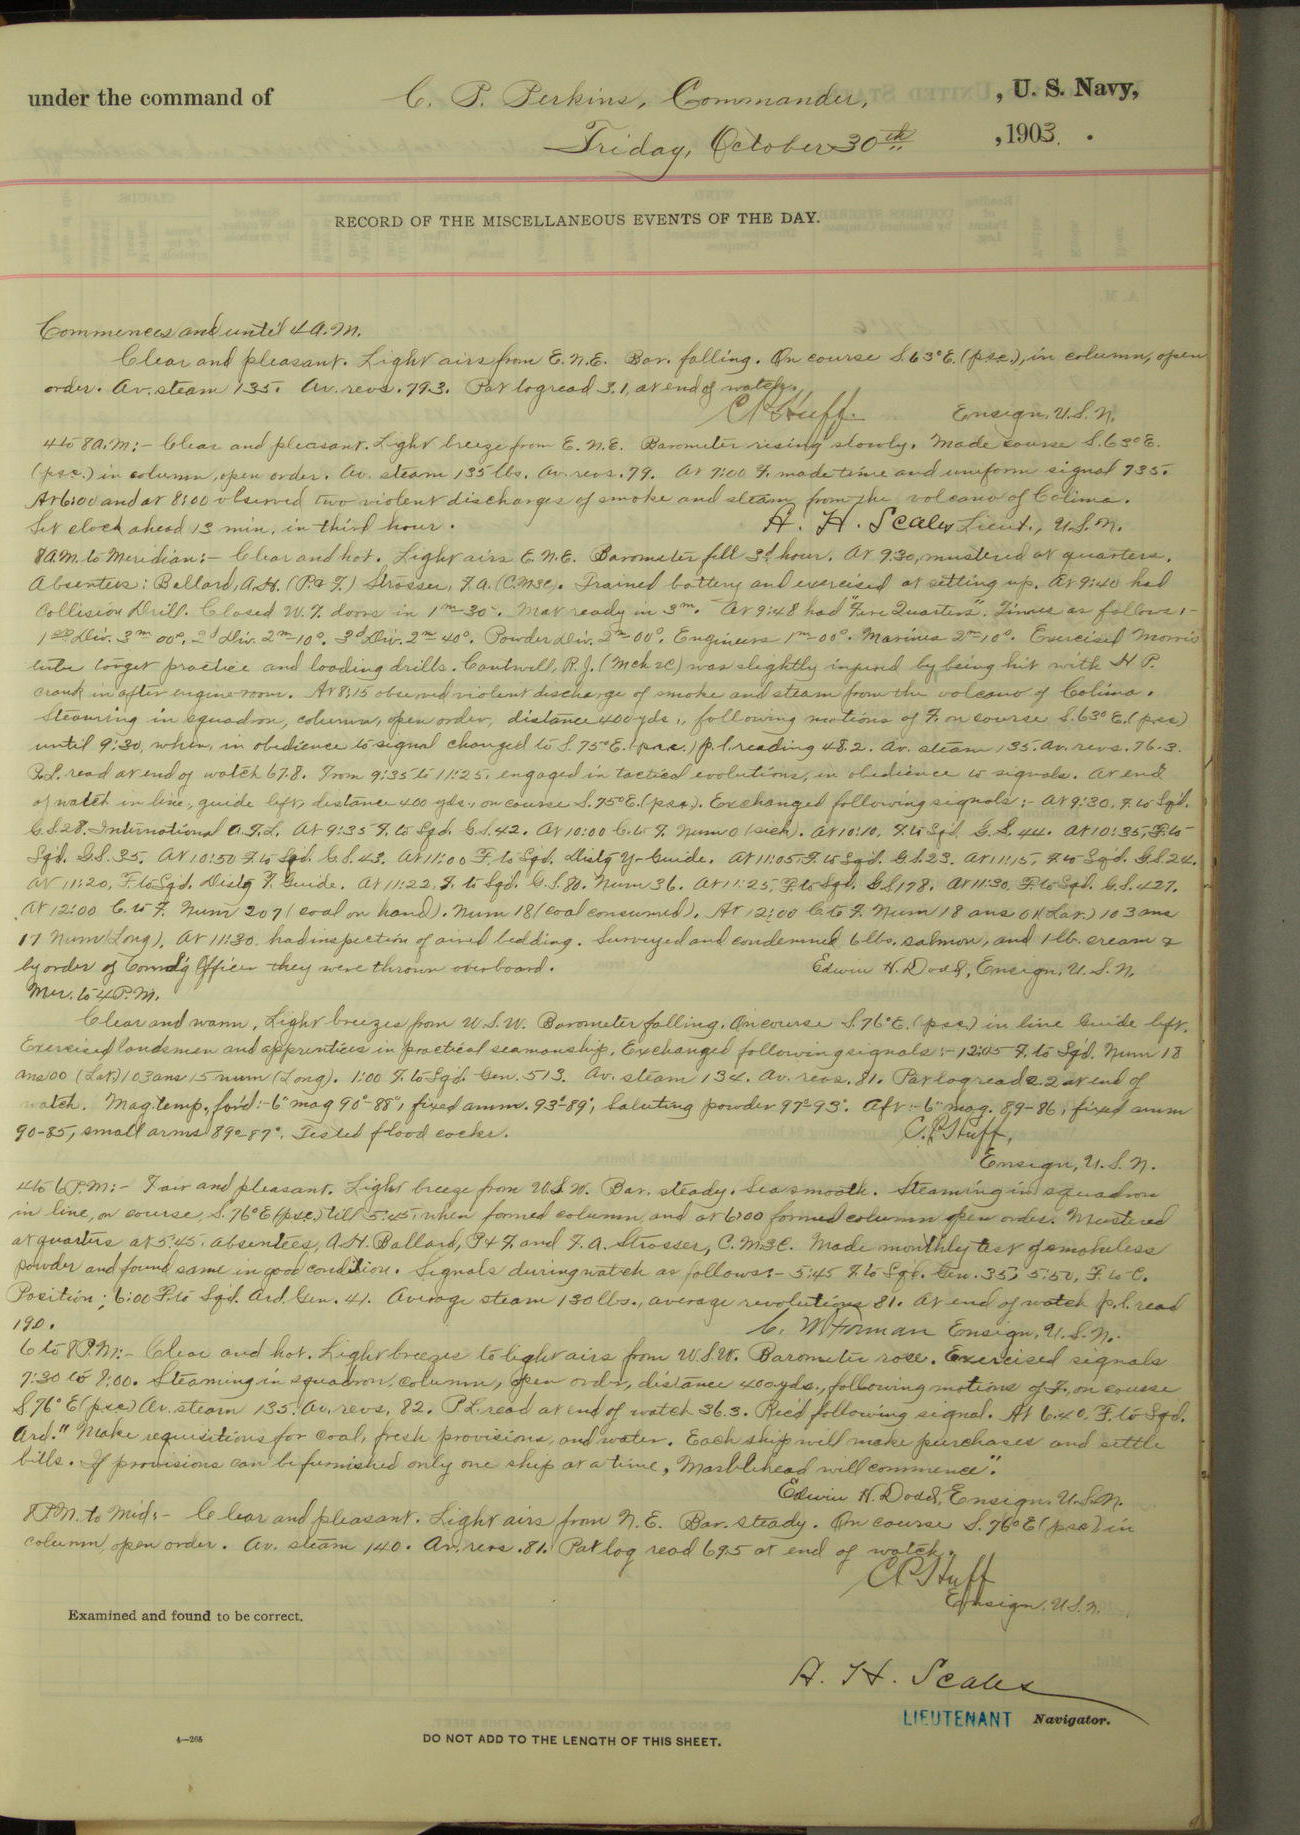 under the command of C. P. Perkins, Commander, , U. S. Navy,
Friday, October 30th , 1903.
RECORD OF THE MISCELLANEOUS EVENTS OF THE DAY.
Commences and until 4 A.M.
Clear and pleasant. Light airs from E.N.E. Bar. falling. On course S.63°E. (psc.), in column, open
order. Av. steam 135. Av. revs. 79.3. Pat log read 3.1, at end of watch.
C P Huff. Ensign, U.S.N.
4 to 8 A.M:- Clear and pleasant. Light breeze from E.N.E. Barometer rising slowly. Made course S.63°E.
(psc.) in column, open order. Av. steam 135 lbs. Av. revs. 79. At 7:00 F. made time and uniform signal 735.
At 6:00 and at 8:00 observed two violent discharges of smoke and steam from the volcano of Colima.
Set clock ahead 13 min. in third hour. A. H. Scales Lieut., U.S.N.
8 A.M. to Meridian:- Clear and hot. Light airs E.N.E. Barometer fell 3d hour. At 9:30, mustered at quarters.
Absentees: Ballard, A.H. (P & F.) Strosser, F.A. (C.M3C). Trained battery and exercised at setting up. At 9:40 had
Collision Drill. Closed W.T. doors in 1m-30s. Mat ready in 3m. At 9:48 had "Fire Quarters". Times as follows:-
1st Div. 3m 00s. 2d Div. 2m-10s. 3d Div. 2m 40s, Powder Div. 2m 00s. Engineers 1m-00s. Marines 2m 10s. Exercised Morris
tube target practice and loading drills. Cantwell, R.J. (Mch 2C) was slightly injured by being hit with H.P.
crank in after engine room. At 8:15 observed violent discharge of smoke and steam from the volcano of Colima.
Steaming in squadron, column, open order, distance 400 yds., following motions of F. on course S.63°E. (psc)
until 9:30, when, in obedience to signal changed to S.75°E. (psc.) p.l. reading 48.2. Av. steam 135. Av. revs. 76.3.
P.L. read at end of watch 67.8. From 9:35 to 11:25, engaged in tactical evolutions, in obedience to signals. At end
of watch in line, guide left, distance 400 yds., on course S.75°E. (psc). Exchanged following signals:- At 9:30, F. to Sqd.
G.S.28. International A.F.L. At 9:35 F. to Sqd. G.S.42. At 10:00 C. to F. Num 0 (sick). At 10:10, F. to Sqd. G.S. 44. At 10:35, F. to
Sqd. G.S. 35. At 10:50 F. to Sqd. G.S. 43. At 11:00 F. to Sqd. Distg Y-Guide. At 11:05, F. to Sqd. G.S.23. At 11:15, F. to Sqd. G.S. 24.
At 11:20, F. to Sqd. Distg F. Guide. At 11:22, F. to Sqd. G.S.80. Num 36. At 11:25, F. to Sqd. G.S.178. At 11:30 F. to Sqd. G.S. 427.
At 12:00 C. to F. Num 207 (coal on hand). Num 18 (coal consumed). At 12:00 C to F. Num 18 ans 01 (Lat.) 103 ans
17 Num (Long). At 11:30 had inspection of aired bedding. Surveyed and condemned 6 lbs. salmon, and 1 lb. cream &
by order of Comd'g Officer they were thrown overboard. Edwin H. Dodd, Ensign, U.S.N.
Mer. to 4 P.M.
Clear and warm, Light breezes from W.S.W. Barometer falling. On course S.76°E. (psc) in line Guide left.
Exercised landsmen and apprentices in practical seamanship. Exchanged following signals:- 12:05 F. to Sqd. Num 18
ans 00 (Lat) 103 ans 15 num (Long). 1:00 F. to Sqd. Gen. 513. Av. steam 134. Av. revs. 81. Pat log read 2.2 at end of
watch. Mag. temp. for'd:- 6" mag 90°-88°, fixed amm. 93°-89°, Saluting powder 97°-93°. Aft:- 6" mag. 89-86, fixed amm
90-85, small arms 89°-87°. Tested flood cocks. C. P. Huff,
Ensign, U.S.N.
4 to 6 P.M:- Fair and pleasant. Light breeze from W.S.W. Bar. steady. Sea smooth. Steaming in squadron
in line, on course, S.76°E (psc.) till 5:45, when formed column, and at 6:00 formed column open order. Mustered
at quarters at 5:45. Absentees, A.H. Ballard, P & F. and F.A. Strosser, C.M3C. Made monthly test of smokeless
powder and found same in good condition. Signals during watch as follows:- 5:45 F. to Sqd. Gen. 35, 5:50, F. to C.
Position; 6:00 F. to Sqd. Ard. Gen. 41. Average steam 130 lbs., average revolutions 81. At end of watch p.l. read
19.0. C. W Forman Ensign, U.S.N.
6 to 8 P.M:- Clear and hot. Light breezes to light airs from W.S.W. Barometer rose. Exercised signals
7:30 to 8:00. Steaming in squadron, column, open order, distance 400 yds., following motions of F. on course
S.76°E (psc) Av. steam 135. Av. revs. 82. P.L. read at end of watch 36.3. Rec'd following signal. At 6.40, F. to Sqd.
Ard. "Make requisitions for coal, fresh provisions, and water. Each ship will make purchases and settle
bills. If provisions can be furnished only one ship at a time, Marblehead will commence".
Edwin H. Dodd, Ensign, U.S.N.
8 P.M. to Mid:- Clear and pleasant. Light airs from N.E. Bar. steady. On course S.76°E (psc) in
column, open order. Av. steam 140. Av. revs. 81. Pat log read 69.5 at end of watch.
C P Huff
Ensign, U.S.N.
Examined and found to be correct.
A. H. Scales
LIEUTENANT Navigator.
4—265
DO NOT ADD TO THE LENGTH OF THIS SHEET.